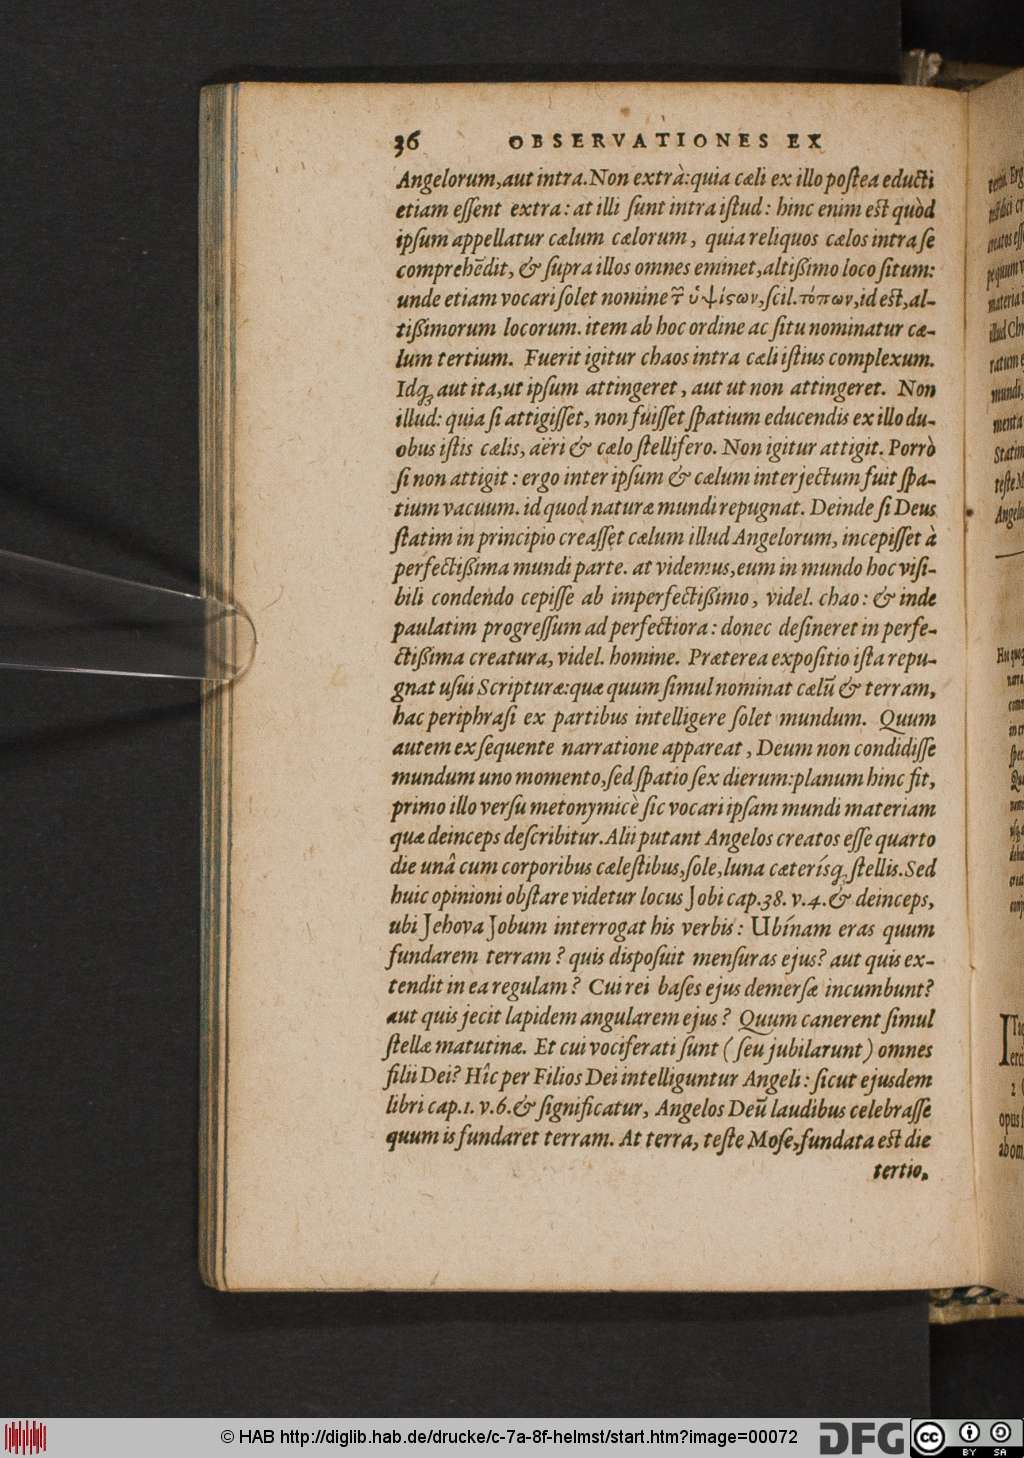 36 OBSERVATIONES EX
Angelorum, aut intra. Non extrà: quia cæli ex illo postea educti
etiam essent extra: at illi sunt intra istud: hinc enim est quòd
ipsum appellatur cælum cælorum, quia reliquos cælos intra se
comprehēdit, & supra illos omnes eminet, altißimo loco situm:
unde etiam vocari solet nomine τ῀ ὑψίϛων, scil. τόπων, id est, al-
tißimorum locorum. item ab hoc ordine ac situ nominatur cæ-
lum tertium. Fuerit igitur chaos intra cæli istius complexum.
Idq; aut ita, ut ipsum attingeret, aut ut non attingeret. Non
illud: quia si attigisset, non fuisset spatium educendis ex illo du-
obus istis cælis, aëri & cælo stellifero. Non igitur attigit. Porrò
si non attigit: ergo inter ipsum & cælum interjectum fuit spa-
tium vacuum. id quod naturæ mundi repugnat. Deinde si Deus
statim in principio creasset cælum illud Angelorum, incepisset à
perfectißima mundi parte. at videmus, eum in mundo hoc visi-
bili condendo cepisse ab imperfectißimo, videl. chao: & inde
paulatim progressum ad perfectiora: donec desineret in perfe-
ctißima creatura, videl. homine. Præterea expositio ista repu-
gnat usui Scripturæ: quæ quum simul nominat cælū & terram,
hac periphrasi ex partibus intelligere solet mundum. Quum
autem ex sequente narratione appareat, Deum non condidisse
mundum uno momento, sed spatio sex dierum: planum hinc fit,
primo illo versu metonymicè sic vocari ipsam mundi materiam
quæ deinceps describitur. Alii putant Angelos creatos esse quarto
die unâ cum corporibus cælestibus, sole, luna cæterísq; stellis. Sed
huic opinioni obstare videtur locus Jobi cap. 38. v. 4. & deinceps,
ubi Jehova Jobum interrogat his verbis: Ubínam eras quum
fundarem terram? quis disposuit mensuras ejus? aut quis ex-
tendit in ea regulam? Cui rei bases ejus demersæ incumbunt?
aut quis jecit lapidem angularem ejus? Quum canerent simul
stellæ matutinæ. Et cui vociferati sunt (seu jubilarunt) omnes
filii Dei? Hîc per Filios Dei intelliguntur Angeli: sicut ejusdem
libri cap. 1. v. 6. & significatur, Angelos Deū laudibus celebrasse
quum is fundaret terram. At terra, teste Mose, fundata est die
tertio.
© HAB http://diglib.hab.de/drucke/c-7a-8f-helmst/start.htm?image=00072
DFG
cc BY SA